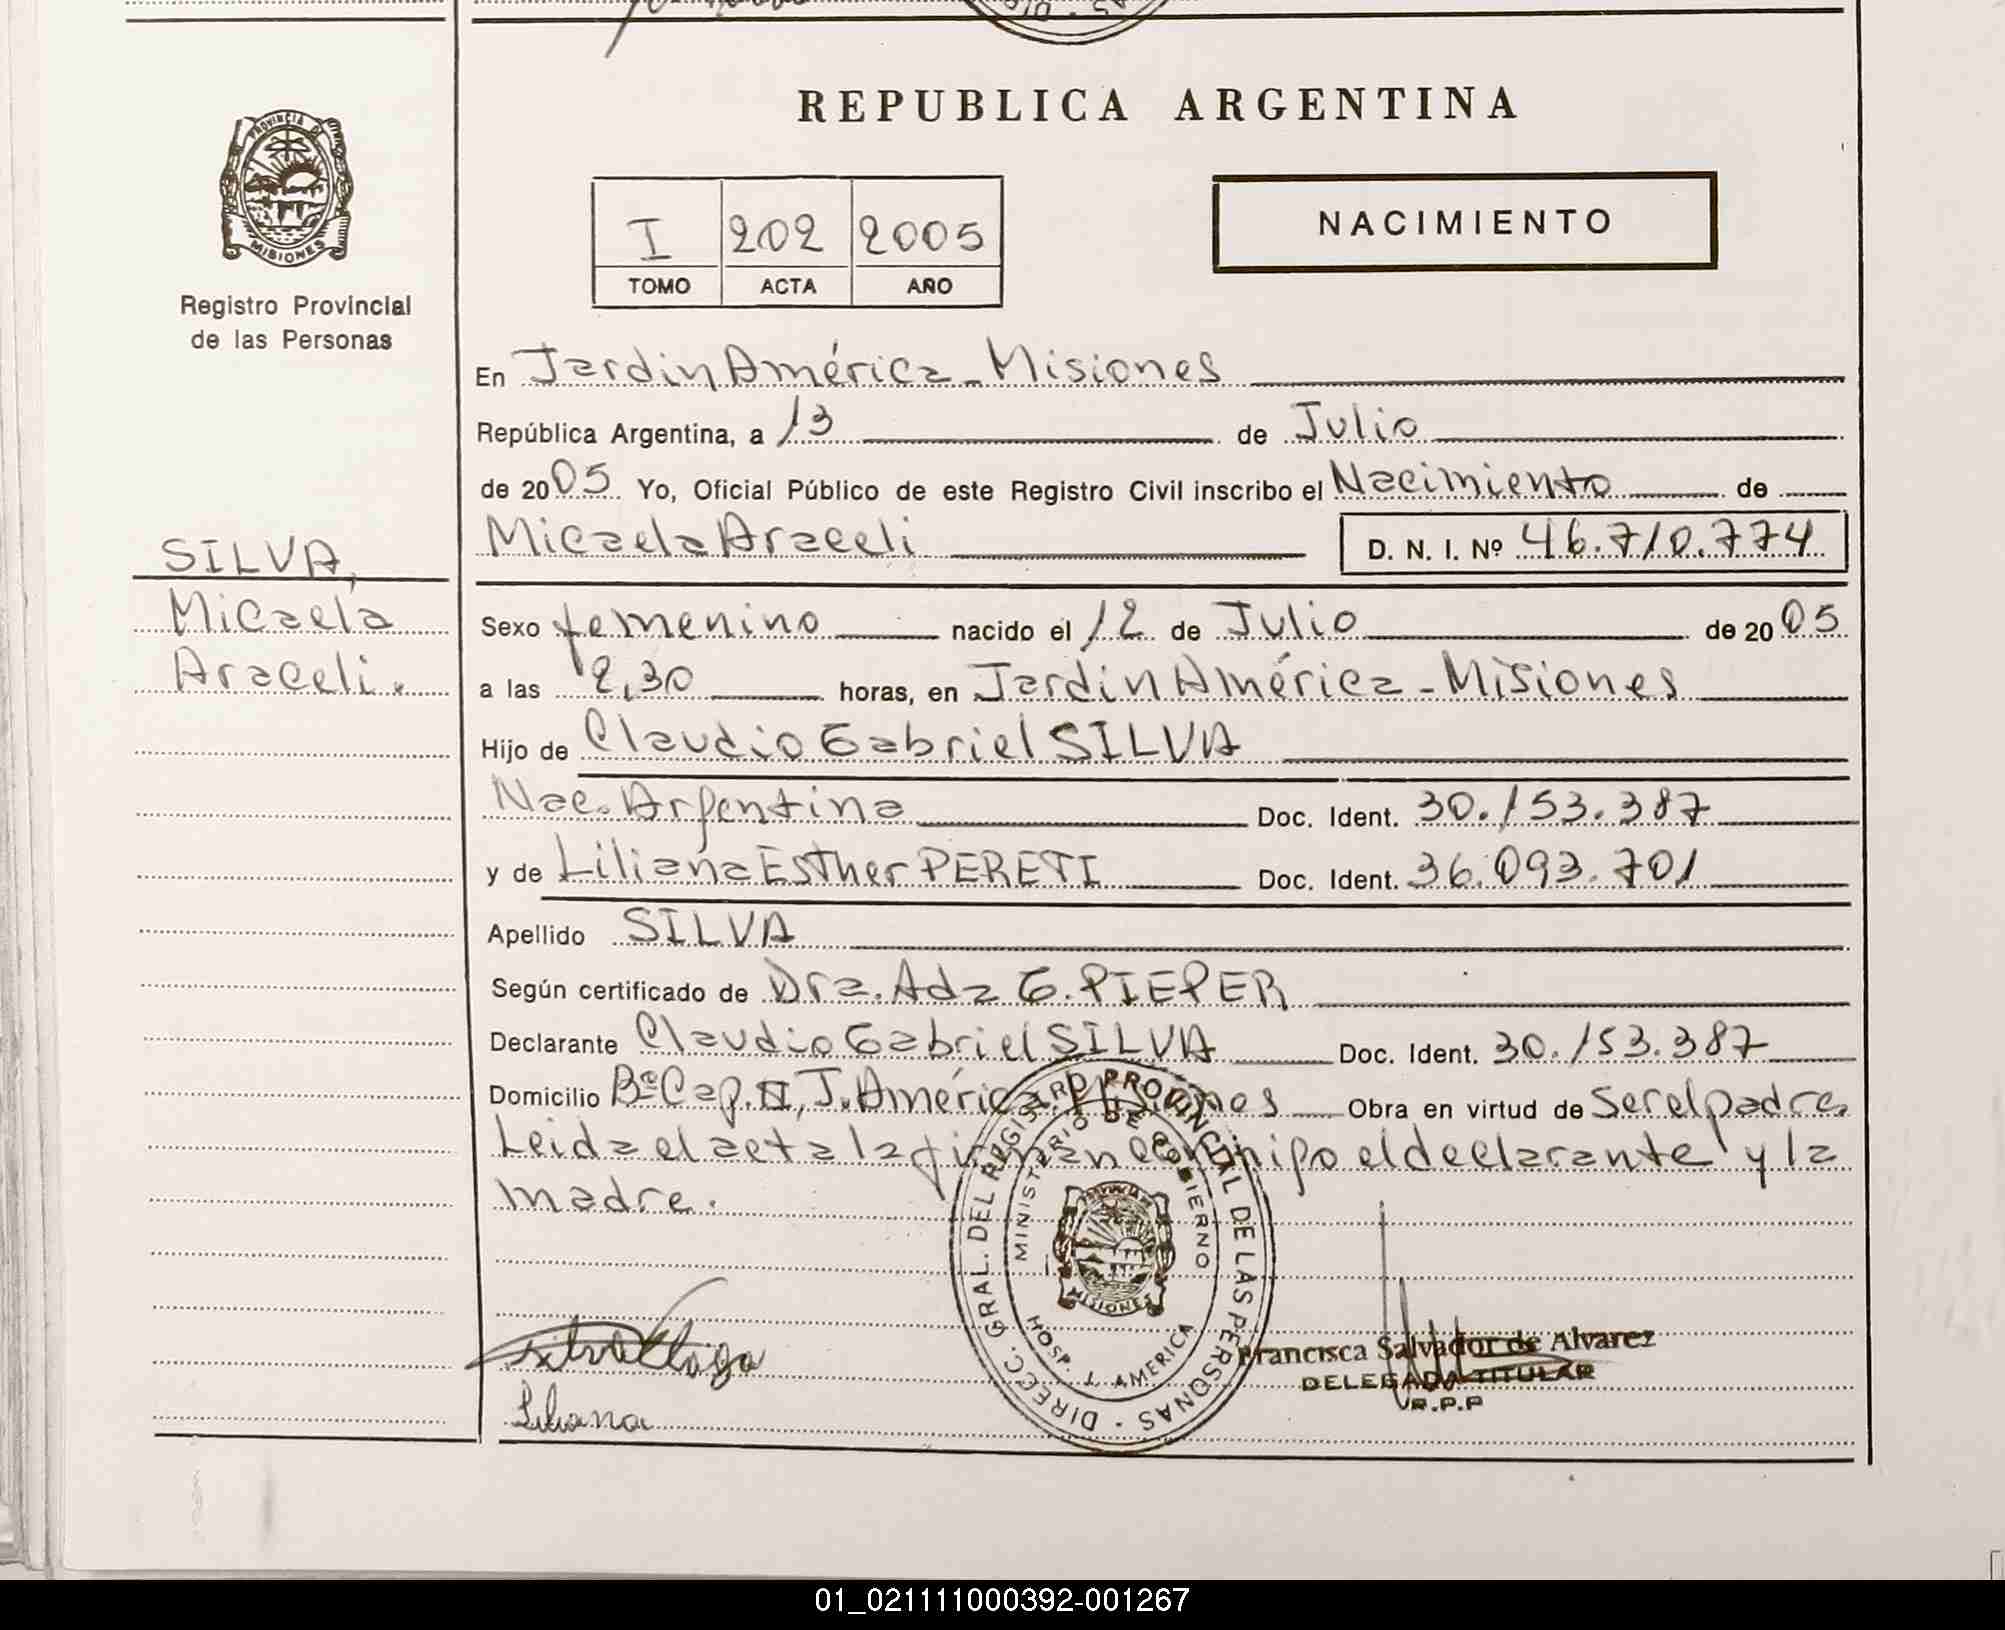 REPUBLICA ARGENTINA
PROVINCIA DE MISIONES
Registro Provincial
de las Personas
I 202 2005
TOMO ACTA AÑO
NACIMIENTO
En Jardin América - Misiones
República Argentina, a 13 de Julio
de 2005 Yo, Oficial Público de este Registro Civil inscribo el Nacimiento de
Micaela Araceli D. N. I. Nº 46.710.774
SILVA,
Micaela
Araceli.
Sexo femenino nacido el 12 de Julio de 2005
a las 2,30 horas, en Jardin América - Misiones
Hijo de Claudio Gabriel SILVA
Nac. Argentina Doc. Ident. 30.153.387
y de Liliana Esther PERETI Doc. Ident. 36.093.701
Apellido SILVA
Según certificado de Dra. Ada G. PIEPER
Declarante Claudio Gabriel SILVA Doc. Ident. 30.153.387
Domicilio Bº Cap. II, J. América. Misiones Obra en virtud de Ser el padre
Leida el acta la firman conmigo el declarante y la
madre.
DIRECC. GRAL. DEL REGISTRO PROVINCIAL DE LAS PERSONAS
MINISTERIO DE GOBIERNO
MISIONES
HOSP. J. AMERICA
Silva
Liliana
Francisca Salvador de Alvarez
DELEGADA TITULAR
R.P.P
01_021111000392-001267